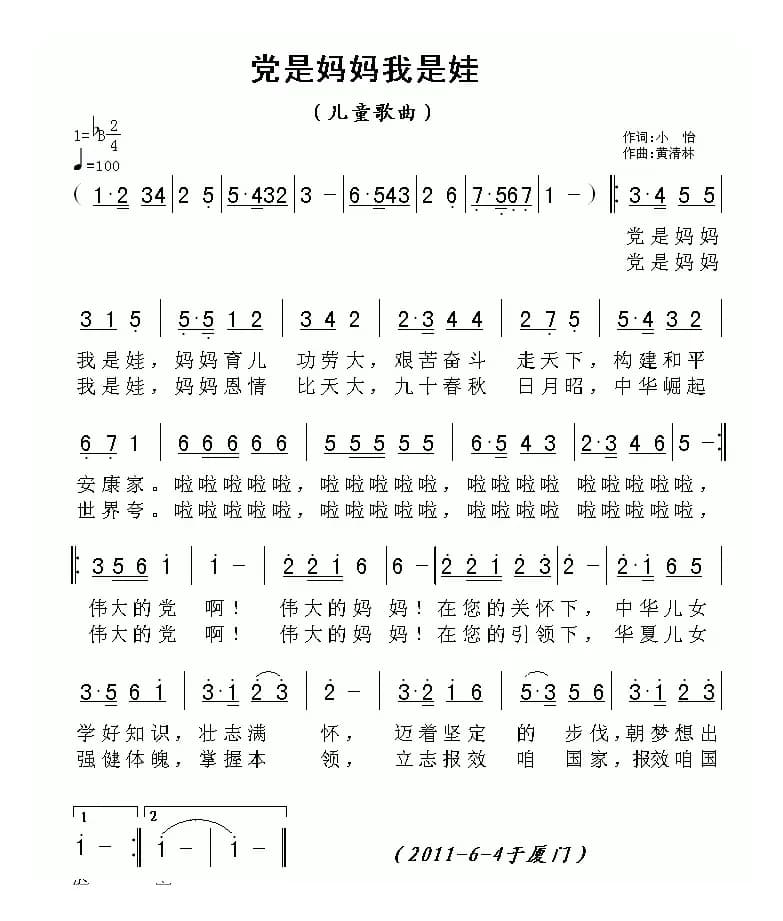 党是妈妈我是娃
(儿童歌曲)
1=♭B 2/4
♩=100
作词:小 怡
作曲:黄清林
( 1·2 34 | 2 5 | 5·432 | 3 - | 6·543 | 2 6 | 7·567 | 1 - ) ‖: 3·4 5 5
党是妈妈
党是妈妈
3 1 5 | 5·5 1 2 | 3 4 2 | 2·3 4 4 | 2 7 5 | 5·4 3 2
我是娃，妈妈育儿 功劳大，艰苦奋斗 走天下，构建和平
我是娃，妈妈恩情 比天大，九十春秋 日月昭，中华崛起
6 7 1 | 6 6 6 6 6 | 5 5 5 5 5 | 6·5 4 3 | 2·3 4 6 | 5 - :‖
安康家。啦啦啦啦啦，啦啦啦啦啦，啦啦啦啦 啦啦啦啦啦，
世界夸。啦啦啦啦啦，啦啦啦啦啦，啦啦啦啦 啦啦啦啦啦，
‖: 3 5 6 1 | 1 - | 2 2 1 6 | 6 - | 2 2 1 2 3 | 2 - | 2·1 6 5
伟大的党 啊！ 伟大的妈 妈！在您的关怀下，中华儿女
伟大的党 啊！ 伟大的妈 妈！在您的引领下，华夏儿女
3·5 6 1 | 3·1 2 3 | 2 - | 3·2 1 6 | 5·3 5 5 | 3·1 2 3
学好知识，壮志满 怀， 迈着坚定 的 步伐，朝梦想出
强健体魄，掌握本 领， 立志报效 咱 国家，报效咱国
1 2
1 - :‖ 1 - | 1 - ‖
(2011-6-4于厦门)